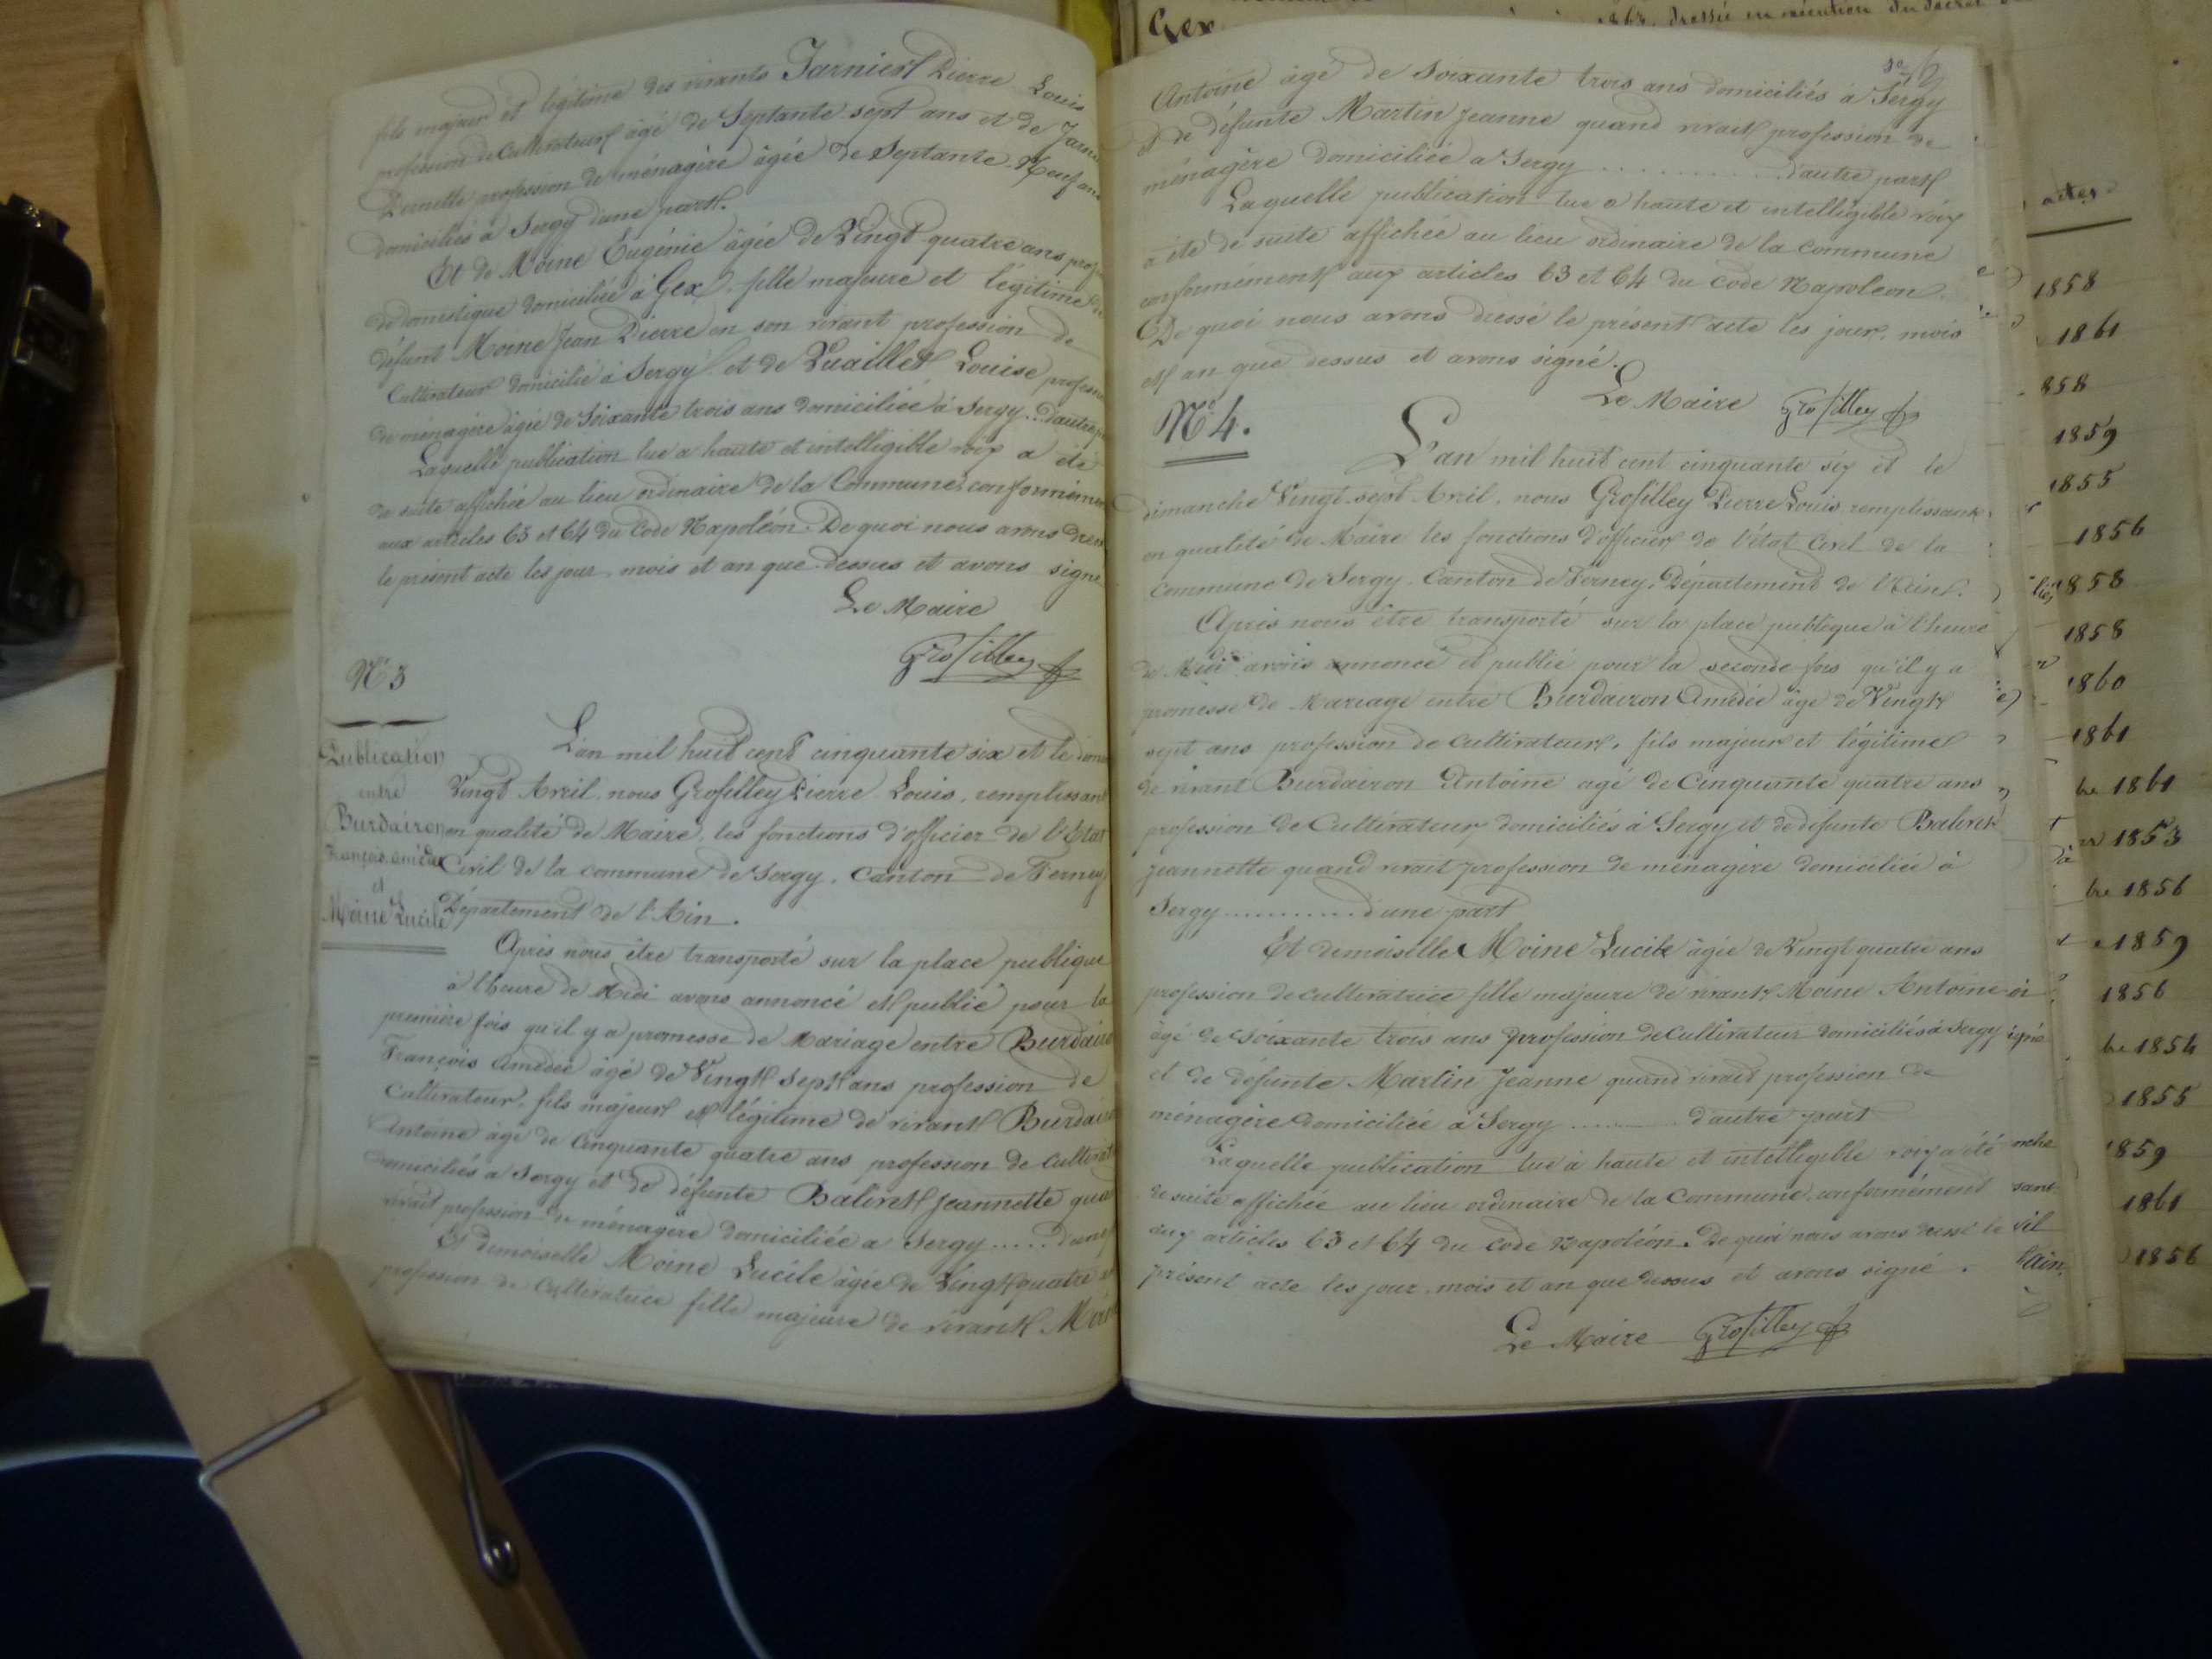 fils majeur et légitime des vivants Jarnier Pierre Louis
profession de Cultivateur âgé de Septante sept ans et de
Pernette profession de ménagère âgée de Septante Neuf ans
domiciliés à Sergy d'une part.
Et de Moine Eugénie âgée de Vingt quatre ans
de domestique domiciliée à Gex, fille majeure et légitime
défunt Moine Jean Pierre en son vivant profession de
Cultivateur domicilié à Sergy et de Vuaillet Louise
de ménagère âgée de Soixante trois ans domiciliée à Sergy...
Laquelle publication lue a haute et intelligible voix a été
de suite affichée au lieu ordinaire de la Commune
aux articles 63 et 64 du Code Napoléon. De quoi nous avons
le présent acte les jour, mois et an que dessus et avons signé
Le Maire
Grosfilley
N° 3
Publication
entre
Burdairon
François Amédée
et
Moine Lucile
L'an mil huit cent cinquante six et le
Vingt Avril, nous Grosfilley Pierre Louis, remplissant
en qualité de Maire, les fonctions d'officier de l'Etat
Civil de la commune de Sergy, Canton de Ferney
Département de l'Ain.
Après nous être transporté sur la place publique
à l'heure de Midi avons annoncé et publié pour la
première fois qu'il y a promesse de Mariage entre
François Amédée âgé de Vingt Sept ans profession de
Cultivateur, fils majeur et légitime de vivant
Antoine âgé de Cinquante quatre ans profession de
domiciliés a Sergy et de défunte Balivet Jeannette
vivait profession de ménagère domiciliée a Sergy.....
Et demoiselle Moine Lucile âgée de Vingt quatre
profession de Cultivatrice fille majeure de vivant
Antoine âgé de Soixante trois ans domiciliés à Sergy
et de défunte Martin Jeanne quand vivait profession de
ménagère domiciliée a Sergy ............ d'autre part
Laquelle publication lue a haute et intelligible voix
a été de suite affichée au lieu ordinaire de la Commune
conformément aux articles 63 et 64 du Code Napoléon.
De quoi nous avons dressé le présent acte les jour, mois
et an que dessus et avons signé.
Le Maire Grosfilley
N° 4.
L'an mil huit cent cinquante six et le
dimanche Vingt-sept Avril, nous Grosfilley Pierre Louis remplissant
en qualité de Maire les fonctions d'officier de l'état Civil de la
commune de Sergy. Canton de Ferney. Département de l'Ain.
Après nous être transporté sur la place publique à l'heure
de Midi avons annoncé et publié pour la seconde fois qu'il y a
promesse de Mariage entre Burdairon Amédée âgé de Vingt
sept ans profession de Cultivateur, fils majeur et légitime
de vivant Burdairon Antoine agé de Cinquante quatre ans
profession de Cultivateur domiciliés à Sergy et de défunte Balivet
Jeannette quand vivait profession de ménagère domiciliée à
Sergy............ d'une part
Et demoiselle Moine Lucile âgée de Vingt quatre ans
profession de cultivatrice fille majeure de vivant Moine Antoine
âgé de Soixante trois ans profession de Cultivateur domiciliés à Sergy
et de défunte Martin Jeanne quand vivait profession de
ménagère domiciliée a Sergy ............ d'autre part
Laquelle publication lue à haute et intelligible voix a été
de suite affichée au lieu ordinaire de la Commune, conformément
aux articles 63 et 64 du Code Napoléon. De quoi nous avons dressé le
présent acte les jour, mois et an que dessus et avons signé.
Le Maire Grosfilley
Gex
actes
1858
1861
858
1859
1855
1856
1858
1858
1860
1861
bre 1861
1853
bre 1856
1859
1856
bre 1854
1855
1859
1861
1856